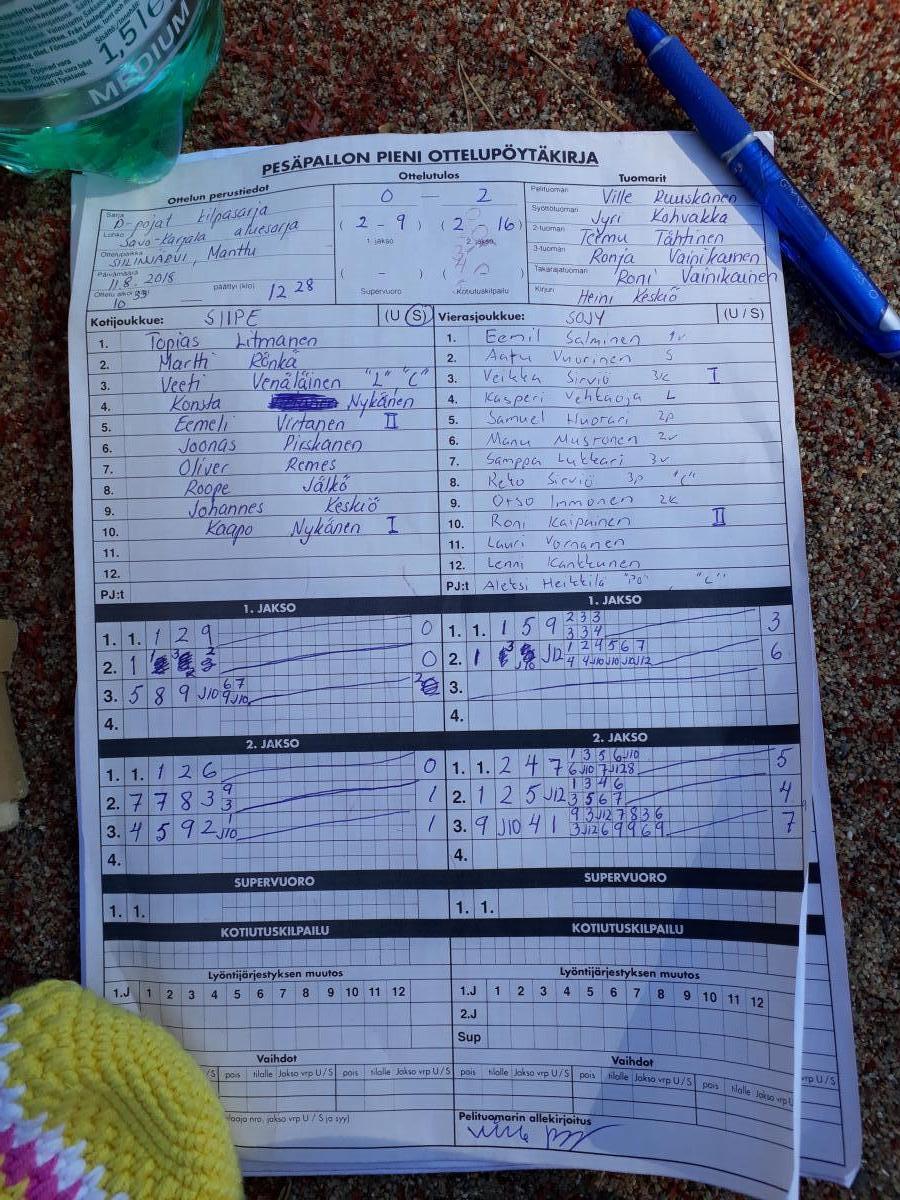 1,5 l
MEDIUM
PESÄPALLON PIENI OTTELUPÖYTÄKIRJA
Ottelun perustiedot
Sarja D-pojat kilpasarja
Lohko Savo-Karjala aluesarja
Ottelupaikka SIILINJÄRVI, Manttu
Päivämäärä 11.8.2018
Ottelu alkoi 10 33 — päättyi (klo) 12 28
Ottelutulos
0 — 2
( 2 - 9 ) ( 2 16 )
1. jakso 2. jakso
( - ) ( )
Supervuoro Kotiutuskilpailu
Tuomarit
Pelituomari Ville Ruuskanen
Syöttötuomari Jyri Kohvakka
2-tuomari Teemu Tähtinen
3-tuomari Ronja Vainikainen
Takarajatuomari Roni Vainikainen
Kirjuri Heini Keskiö
Kotijoukkue: SIIPE (U S)
1. Topias Litmanen
2. Martti Rönkä
3. Veeti Venäläinen "L" "C"
4. Konsta Nykänen
5. Eemeli Virtanen II
6. Joonas Pirskanen
7. Oliver Remes
8. Roope Jälkö
9. Johannes Keskiö
10. Kaapo Nykänen I
11.
12.
PJ:t
Vierasjoukkue: SOJY (U / S)
1. Eemil Salminen 1v
2. Aatu Vuorinen S
3. Veikka Sirviö 3k I
4. Kasperi Vehkaoja L
5. Samuel Huotari 2p
6. Manu Mustonen 2v
7. Samppa Lukkari 3v
8. Reko Sirviö 3p "C"
9. Otso Immonen 2k
10. Roni Kaipainen II
11. Lauri Vornanen
12. Lenni Kankkunen
PJ:t Aleksi Heikkilä "PJ", "L"
1. JAKSO
1. 1. 1 2 9 0
2. 1 0
3. 5 8 9 J10 6 7 9 J10 2
4.
1. JAKSO
1. 1. 1 5 9 2 3 3 3 3 4 3
2. 1 J12 1 2 4 5 6 7 4 4 J10 J10 J10 J12 6
3.
4.
2. JAKSO
1. 1. 1 2 6 0
2. 7 7 8 3 9 3 1
3. 4 5 9 2 J10 1 1
4.
2. JAKSO
1. 1. 2 4 7 1 3 5 6 J10 6 J10 7 J12 8 5
2. 1 2 5 J12 1 3 4 6 3 5 6 7 4
3. 9 J10 4 1 9 3 J12 7 8 3 6 3 J12 6 9 9 6 9 7
4.
SUPERVUORO
1. 1.
SUPERVUORO
1. 1.
KOTIUTUSKILPAILU
KOTIUTUSKILPAILU
Lyöntijärjestyksen muutos
1.J 1 2 3 4 5 6 7 8 9 10 11 12
Lyöntijärjestyksen muutos
1.J 1 2 3 4 5 6 7 8 9 10 11 12
2.J
Sup
Vaihdot
/S pois tilalle Jakso vrp U/S pois tilalle Jakso vrp U/S
Vaihdot
pois tilalle Jakso vrp U/S pois tilalle Jakso vrp U/S pois tilalle Jakso vrp U
vrp U/S
nro, jakso vrp U / S ja syy)
Pelituomarin allekirjoitus